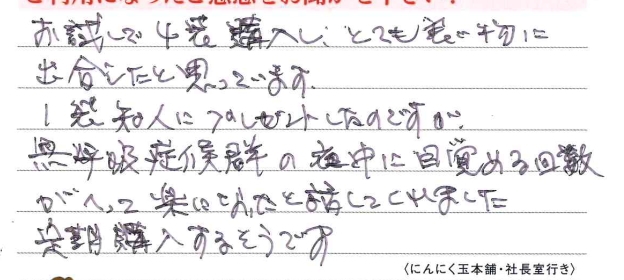 ご利用になったご感想をお聞かせ下さい!
お試しで4袋購入し、とても良い物に
出合えたと思っています。
1袋知人にプレゼントしたのですが、
無呼吸症候群の夜中に目覚める回数
がへって楽になったと話してくれました
定期購入するそうです
(にんにく玉本舗・社長室行き)